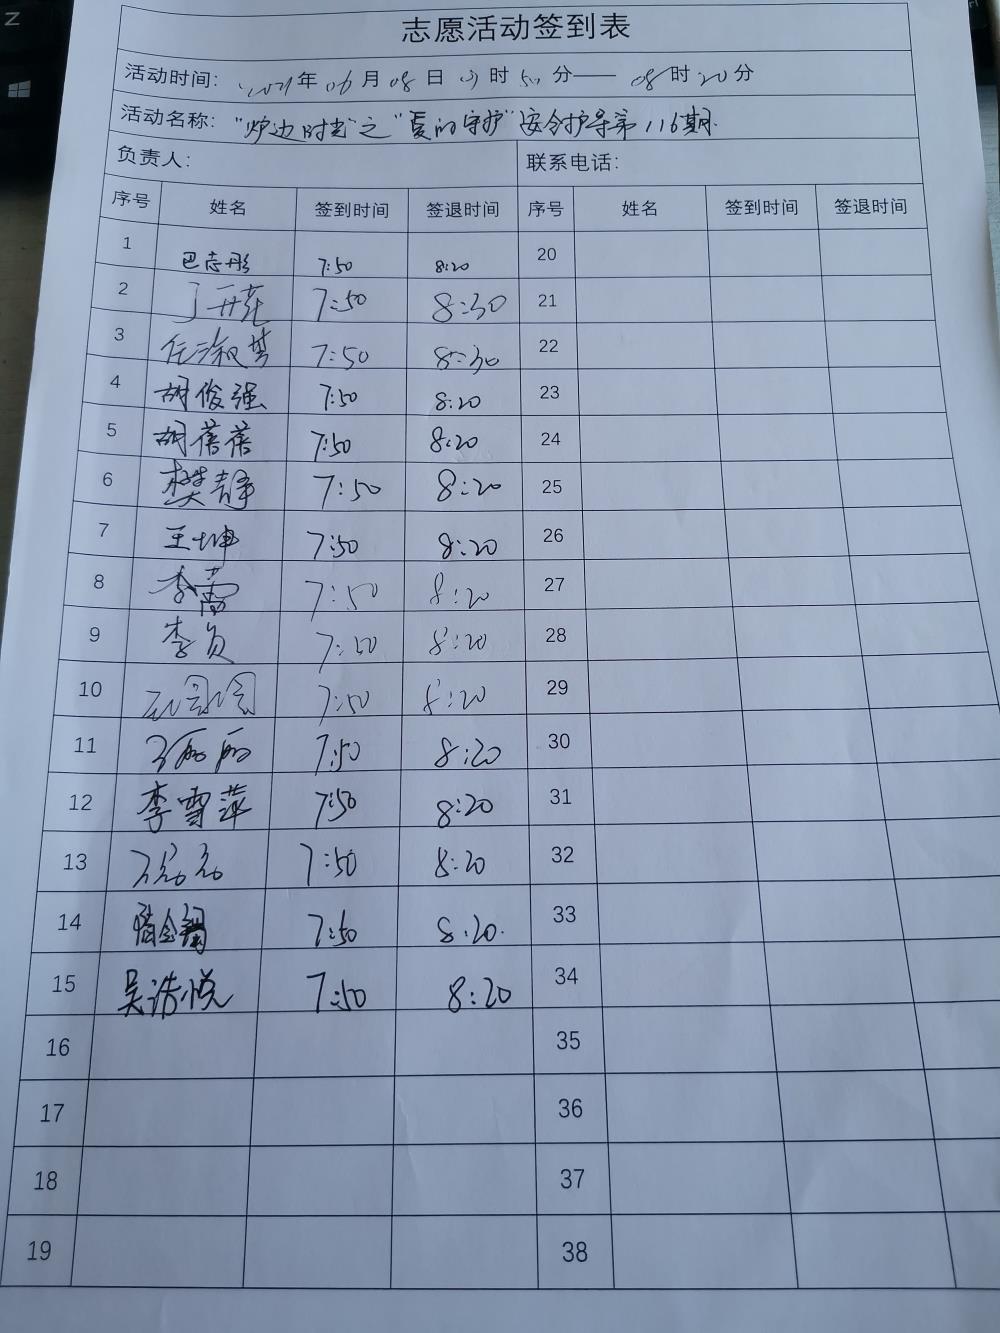 志愿活动签到表
活动时间: 2021年06月08日 07时50分——08时20分
活动名称: "炉边时光"之"夏的守护"安全护导第116期
负责人: 联系电话:
序号 姓名 签到时间 签退时间 序号 姓名 签到时间 签退时间
1 巴志彤 7:50 8:20 20
2 丁开苑 7:50 8:30 21
3 任淑梦 7:50 8:30 22
4 胡俊强 7:50 8:20 23
5 胡蓓蓓 7:50 8:20 24
6 樊静 7:50 8:20 25
7 王坤 7:50 8:20 26
8 李 7:50 8:20 27
9 李负 7:50 8:20 28
10 7:50 8:20 29
11 丽丽 7:50 8:20 30
12 李雪萍 7:50 8:20 31
13 7:50 8:20 32
14 7:50 8:20 33
15 吴浩悦 7:50 8:20 34
16 35
17 36
18 37
19 38